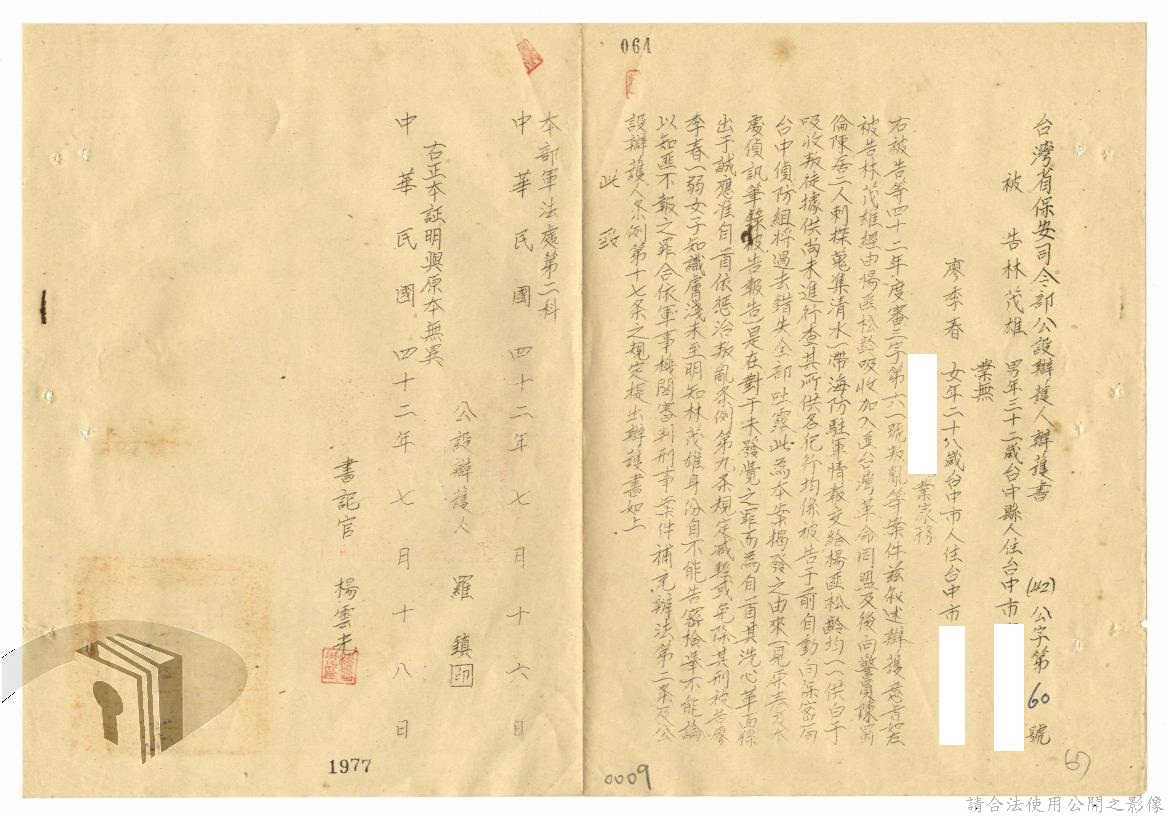 064
台灣省保安司令部公設辯護人辯護書
(42)公字第60號
被告林茂雄 男年三十二歲台中縣人住台中市
業無
廖季春 女年二十八歲台中市人住台中市
業家務
右被告等四十二年度審三字第六一號叛亂等案件茲敘述辯護意旨如左
被告林茂雄經由楊匪松齡吸收加入匪台灣革命同盟及後向警員陳
倫陳居二人刺探蒐集清水一帶海防駐軍情報交給楊匪松齡均一一供白于
吸收叛徒據供尚未進行查其所供各犯行均係被告于前自動向保密局
台中偵防組將過去錯失全部吐露此為本案揭發之由來一見宗卷
處偵訊筆錄被告報告是在對于未發覺之罪而為自首其洗心革面係
出于誠應准自首依惩治叛亂条例第九条規定减輕或免除其刑被告廖
季春一弱女子知識膚淺未至明知林茂雄身份自不能告密檢舉不能論
以知匪不報之罪合依軍事機関審判刑事案件補充辦法第二条及公
設辯護人条例第十七条之規定提出辯護書如上
此致
本部軍法處第二科
中華民國四十二年七月十六日
公設辯護人 羅鎮 印
右正本証明與原本無異
中華民國四十二年七月十八日
書記官 楊雲
1977
0009
67
請合法使用公開之影像